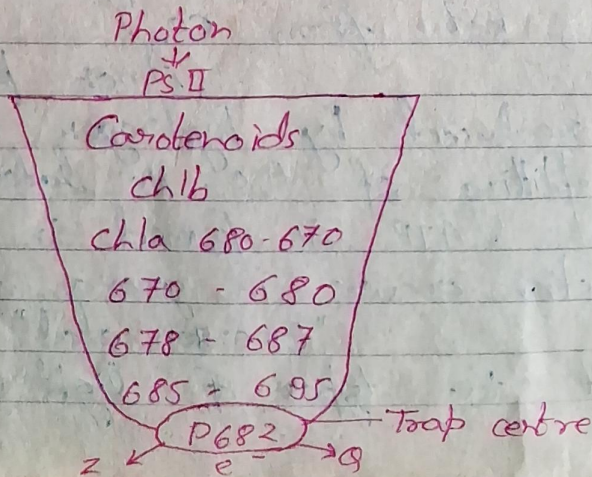 Photon
PS.II
Carotenoids
Chlb
Chla 680-670
670 - 680
678 - 687
685 - 695
P682 Trap centre
Z e- Q